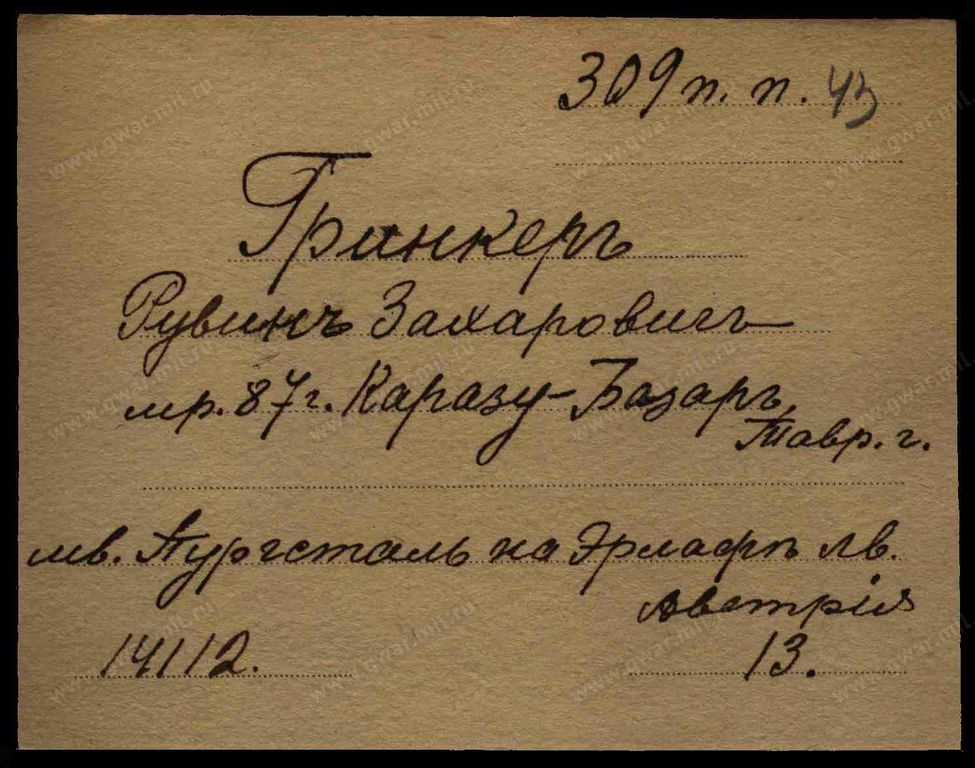 309 п. п. 43
Гринкеръ
Рувинъ Захаровичъ
мр. 87 г. Каразу-Базаръ,
Тавр. г.
мв. Пургсталь на Эрлафѣ лв.
Австрія
14112.
13.